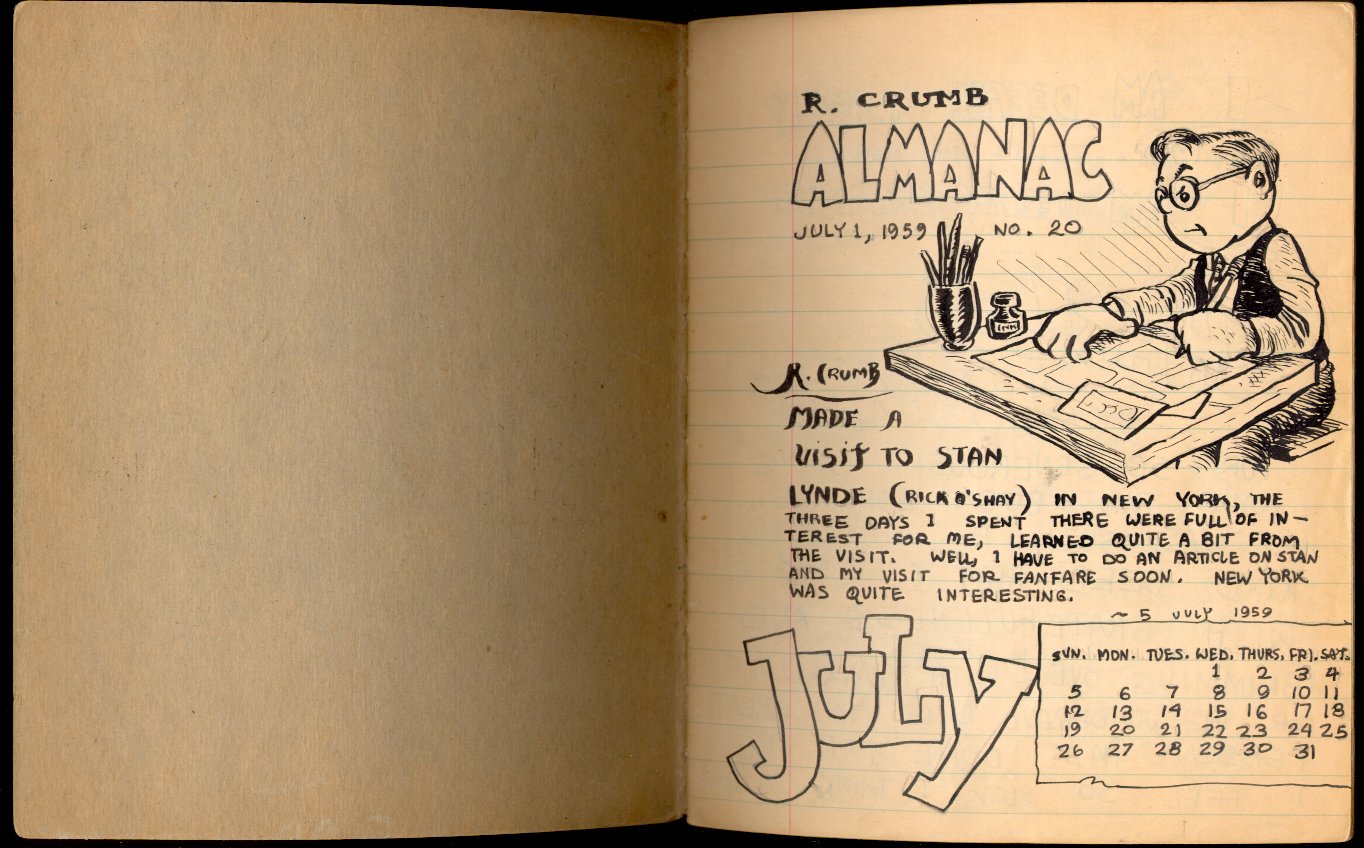 R. CRUMB
ALMANAC
JULY 1, 1959 NO. 20
INK
R. CRUMB
MADE A
VISIT TO STAN
LYNDE (RICK O'SHAY) IN NEW YORK, THE
THREE DAYS I SPENT THERE WERE FULL OF IN-
TEREST FOR ME, LEARNED QUITE A BIT FROM
THE VISIT. WELL, I HAVE TO DO AN ARTICLE ON STAN
AND MY VISIT FOR FANFARE SOON. NEW YORK
WAS QUITE INTERESTING.
~ 5 JULY 1959
JULY
SUN. MON. TUES. WED. THURS. FRI. SAT.
1 2 3 4
5 6 7 8 9 10 11
12 13 14 15 16 17 18
19 20 21 22 23 24 25
26 27 28 29 30 31